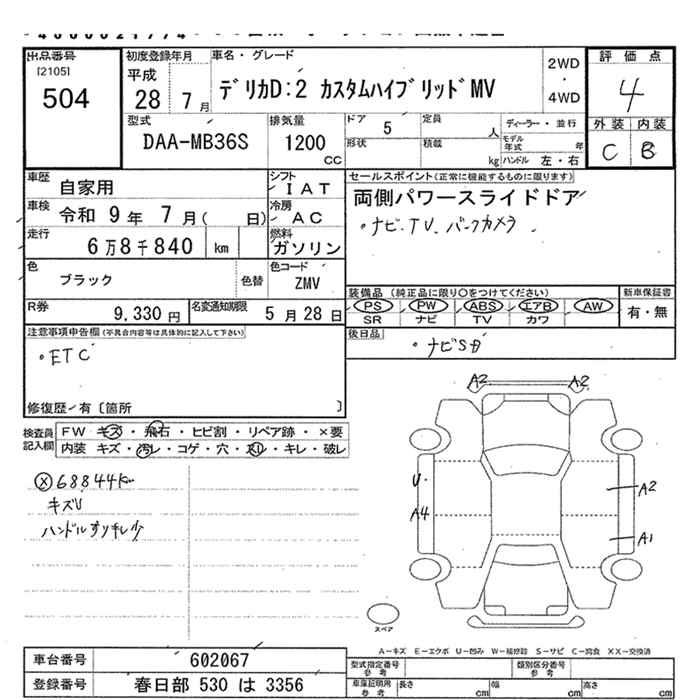 出品番号
[2105]
504
初度登録年月
平成
28 年 7 月
車名・グレード
デリカD:2 カスタムハイブリッドMV
2WD
・
4WD
評価点
4
外装 内装
C B
型式
DAA-MB36S
排気量
1200
cc
ドア 5
定員 人
ディーラー・並行
形状
積載 kg
モデル年式 年
ハンドル 左・右
車歴 自家用
シフト IAT
車検 令和 9 年 7 月( 日)
冷房 AC
走行 6 万 8 千 840 km
燃料 ガソリン
色 ブラック 色替
色コード ZMV
R券 9,330 円
名変通知期限 5 月 28 日
セールスポイント(正常に機能するものに限ります)
両側パワースライドドア
・ナビ.TV.バックカメラ
装備品(純正品に限り○をつけてください)
PS PW ABS エアB AW
SR ナビ TV カワ
新車保証書
有・無
後日品 ・ナビSD
注意事項申告欄(不具合内容等は具体的に記入して下さい)
・ETC
修復歴・有〔箇所 〕
検査員記入欄
FW キズ・飛石・ヒビ割・リペア跡・×要
内装 キズ・汚レ・コゲ・穴・スレ・キレ・破レ
ⓧ68844km
キズU
ハンドルスリキレ少
A2 A2
U.
A4
A2
A1
スペア
A−キズ E−エクボ U−凹み W−補修跡 S−サビ C−腐食 XX−交換済
車台番号 602067
登録番号 春日部 530 は 3356
型式指定番号 参考
類別区分番号 参考
車庫証明用 参考
長さ cm
幅 cm
高さ cm